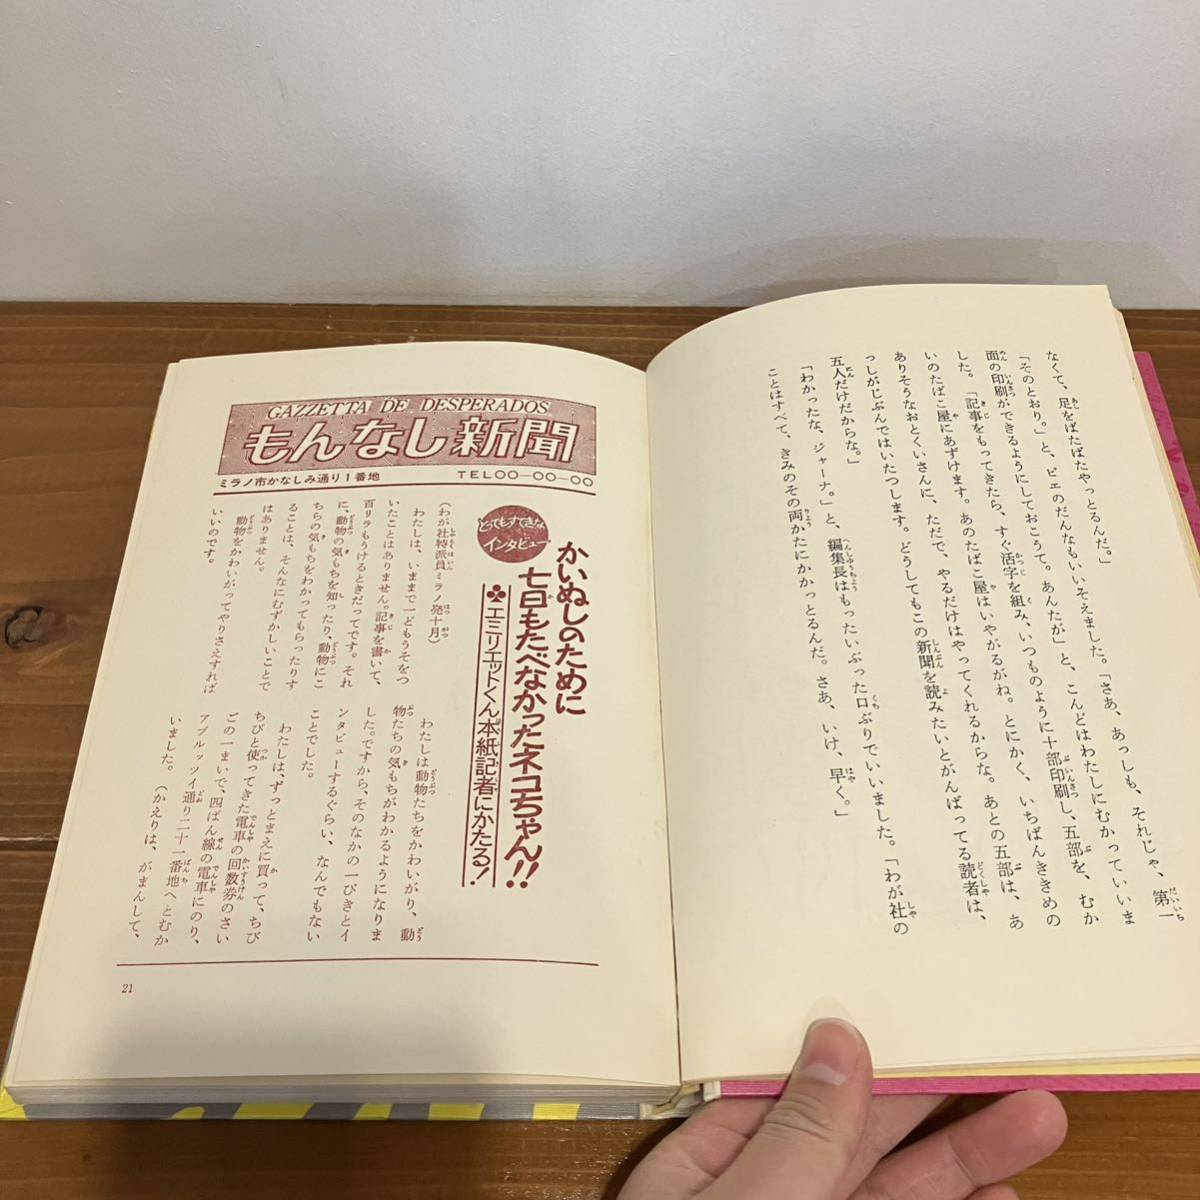 なくて、足をばたばたやっとるんだ。」
「そのとおり。」と、ピエのだんなもいいそえました。「さあ、あっしも、それじゃ、第一
面の印刷ができるようにしておこうて。あんたが」と、こんどはわたしにむかっていいま
した。「記事をもってきたら、すぐ活字を組み、いつものように十部印刷し、五部を、むか
いのたばこ屋にあずけます。あのたばこ屋はいやがるがね。とにかく、いちばんききめの
ありそうなおとくいさんに、ただで、やるだけはやってくれるからな。あとの五部は、あ
っしがじぶんではいたつします。どうしてもこの新聞を読みたいとがんばってる読者は、
五人だけだからな。」
「わかったな、ジャーナ。」と、編集長はもったいぶった口ぶりでいいました。「わが社の
ことはすべて、きみのその両かたにかかっとるんだ。さあ、いけ、早く。」
GAZZETTA DE DESPERADOS
もんなし新聞
ミラノ市かなしみ通り1番地 TEL00-00-00
とってもすてきな
インタビュー
かいぬしのために
七日もたべなかったネコちゃん!!
エミリエットくん本紙記者にかたる!
(わが社特派員ミラノ発十月)
わたしは、いままで一どもうそをつ
いたことはありません。記事を書いて、
百リラもうけるときだってです。それ
に、動物の気もちを知ったり、動物にこ
ちらの気もちをわかってもらったりす
ることは、そんなにむずかしいことで
はありません。
動物をかわいがってやりさえすれば
いいのです。
わたしは動物たちをかわいがり、動
物たちの気もちがわかるようになりま
した。ですから、そのなかの一ぴきとイ
ンタビューするぐらい、なんでもない
ことでした。
わたしは、ずっとまえに買って、ちび
ちびと使ってきた電車の回数券のさい
ごの一まいで、四ばん線の電車にのり、
アブルッツイ通り二十一番地へとむか
いました。(かえりは、がまんして、
21